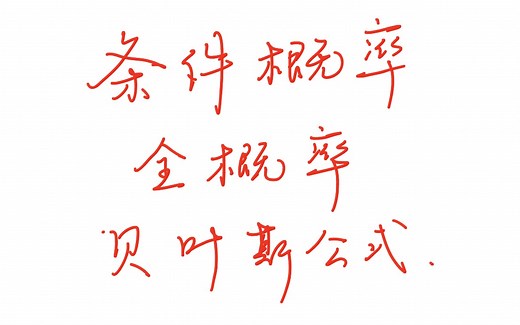 条件概率
全概率
贝叶斯公式.